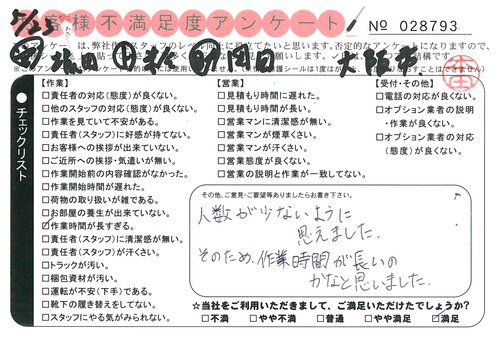 7/23
お客様不満足度アンケート
No 028793
大阪市
チェックリスト
【作業】
□責任者の対応(態度)が良くない。
□他のスタッフの対応(態度)が良くない。
□作業を見ていて不安がある。
□責任者(スタッフ)に好感が持てない。
□お客様への挨拶が出来ていない。
□ご近所への挨拶・気遣いが無い。
□作業開始前の内容確認がなかった。
□作業開始時間が遅れた。
□荷物の取り扱いが雑である。
□お部屋の養生が出来ていない。
□作業時間が長すぎる。
□責任者(スタッフ)に清潔感が無い。
□責任者(スタッフ)が汗さい。
□トラックが汚い。
□梱包資材が汚い。
□運転が不安(下手)である。
□靴下の履き替えをしてない。
□スタッフにやる気がみられない。
【営業】
□見積もり時間に遅れた。
□見積もり時間が長い。
□営業マンに清潔感が無い。
□営業マンが煙草くさい。
□営業マンが汗くさい。
□営業態度が良くない。
□営業の説明と作業が一致してない。
【受付・その他】
□電話の対応が良くない。
□オプション業者の説明
・作業が良くない。
□オプション業者の対応
(態度)が良くない。
その他、ご意見・ご要望等ありましたらお書き下さい。
人数が少ないように
思えました。
そのため、作業時間が長いの
かなと思いました。
☆当社をご利用いただきまして、ご満足いただけたでしょうか?
□不満 □やや不満 □普通 □やや満足 □満足